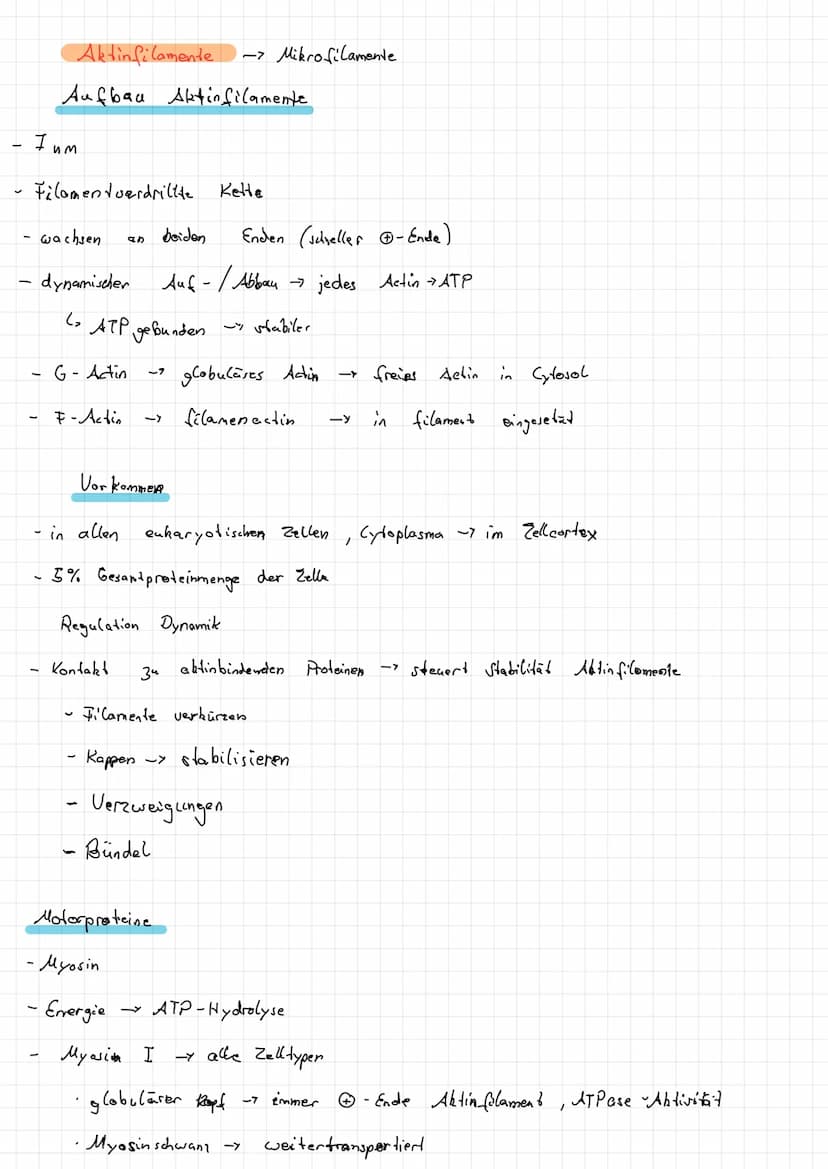 Aktinfilamente → Mikrofilamente
Aufbau Aktinfilamente
- 7 nm
- Filamentverdrillte Kette
- wachsen an beiden Enden (scheller ⊕-Ende)
- dynamischer Auf-/Abbau → jedes Actin → ATP
↳ ATP gebunden → stabiler
- G-Actin → globuläres Actin → freies Actin in Cytosol
- F-Actin → filamenactin → in filament eingesetzt
Vorkommen
- in allen eukaryotischen Zellen, Cytoplasma → im Zellcortex
- 5% Gesamtproteinmenge der Zelle
Regulation Dynamik
- Kontakt zu aktinbindenden Proteinen → steuert Stabilität Aktinfilamente
- Filamente verkürzen
- Kappen → stabilisieren
- Verzweigungen
- Bündel
Motorproteine
- Myosin
- Energie → ATP-Hydrolyse
- Myosin I → alle Zelltypen
· globulärer Kopf → immer ⊕-Ende Aktinfilament, ATPase-Aktivität
· Myosinschwanz → weitertransportiert